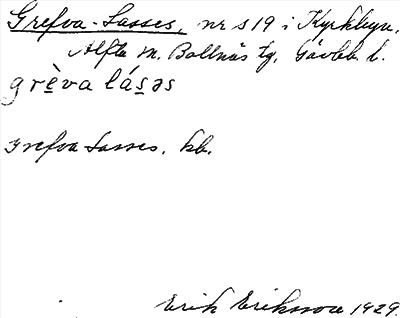 Grefva-Lasses, nr s19 i Kyrkbyn,
Alfta sn. Bollnäs tg. Gävleb. l.
grèva lásəs
Grefva Lasses. kb.
Erik Eriksson 1929.